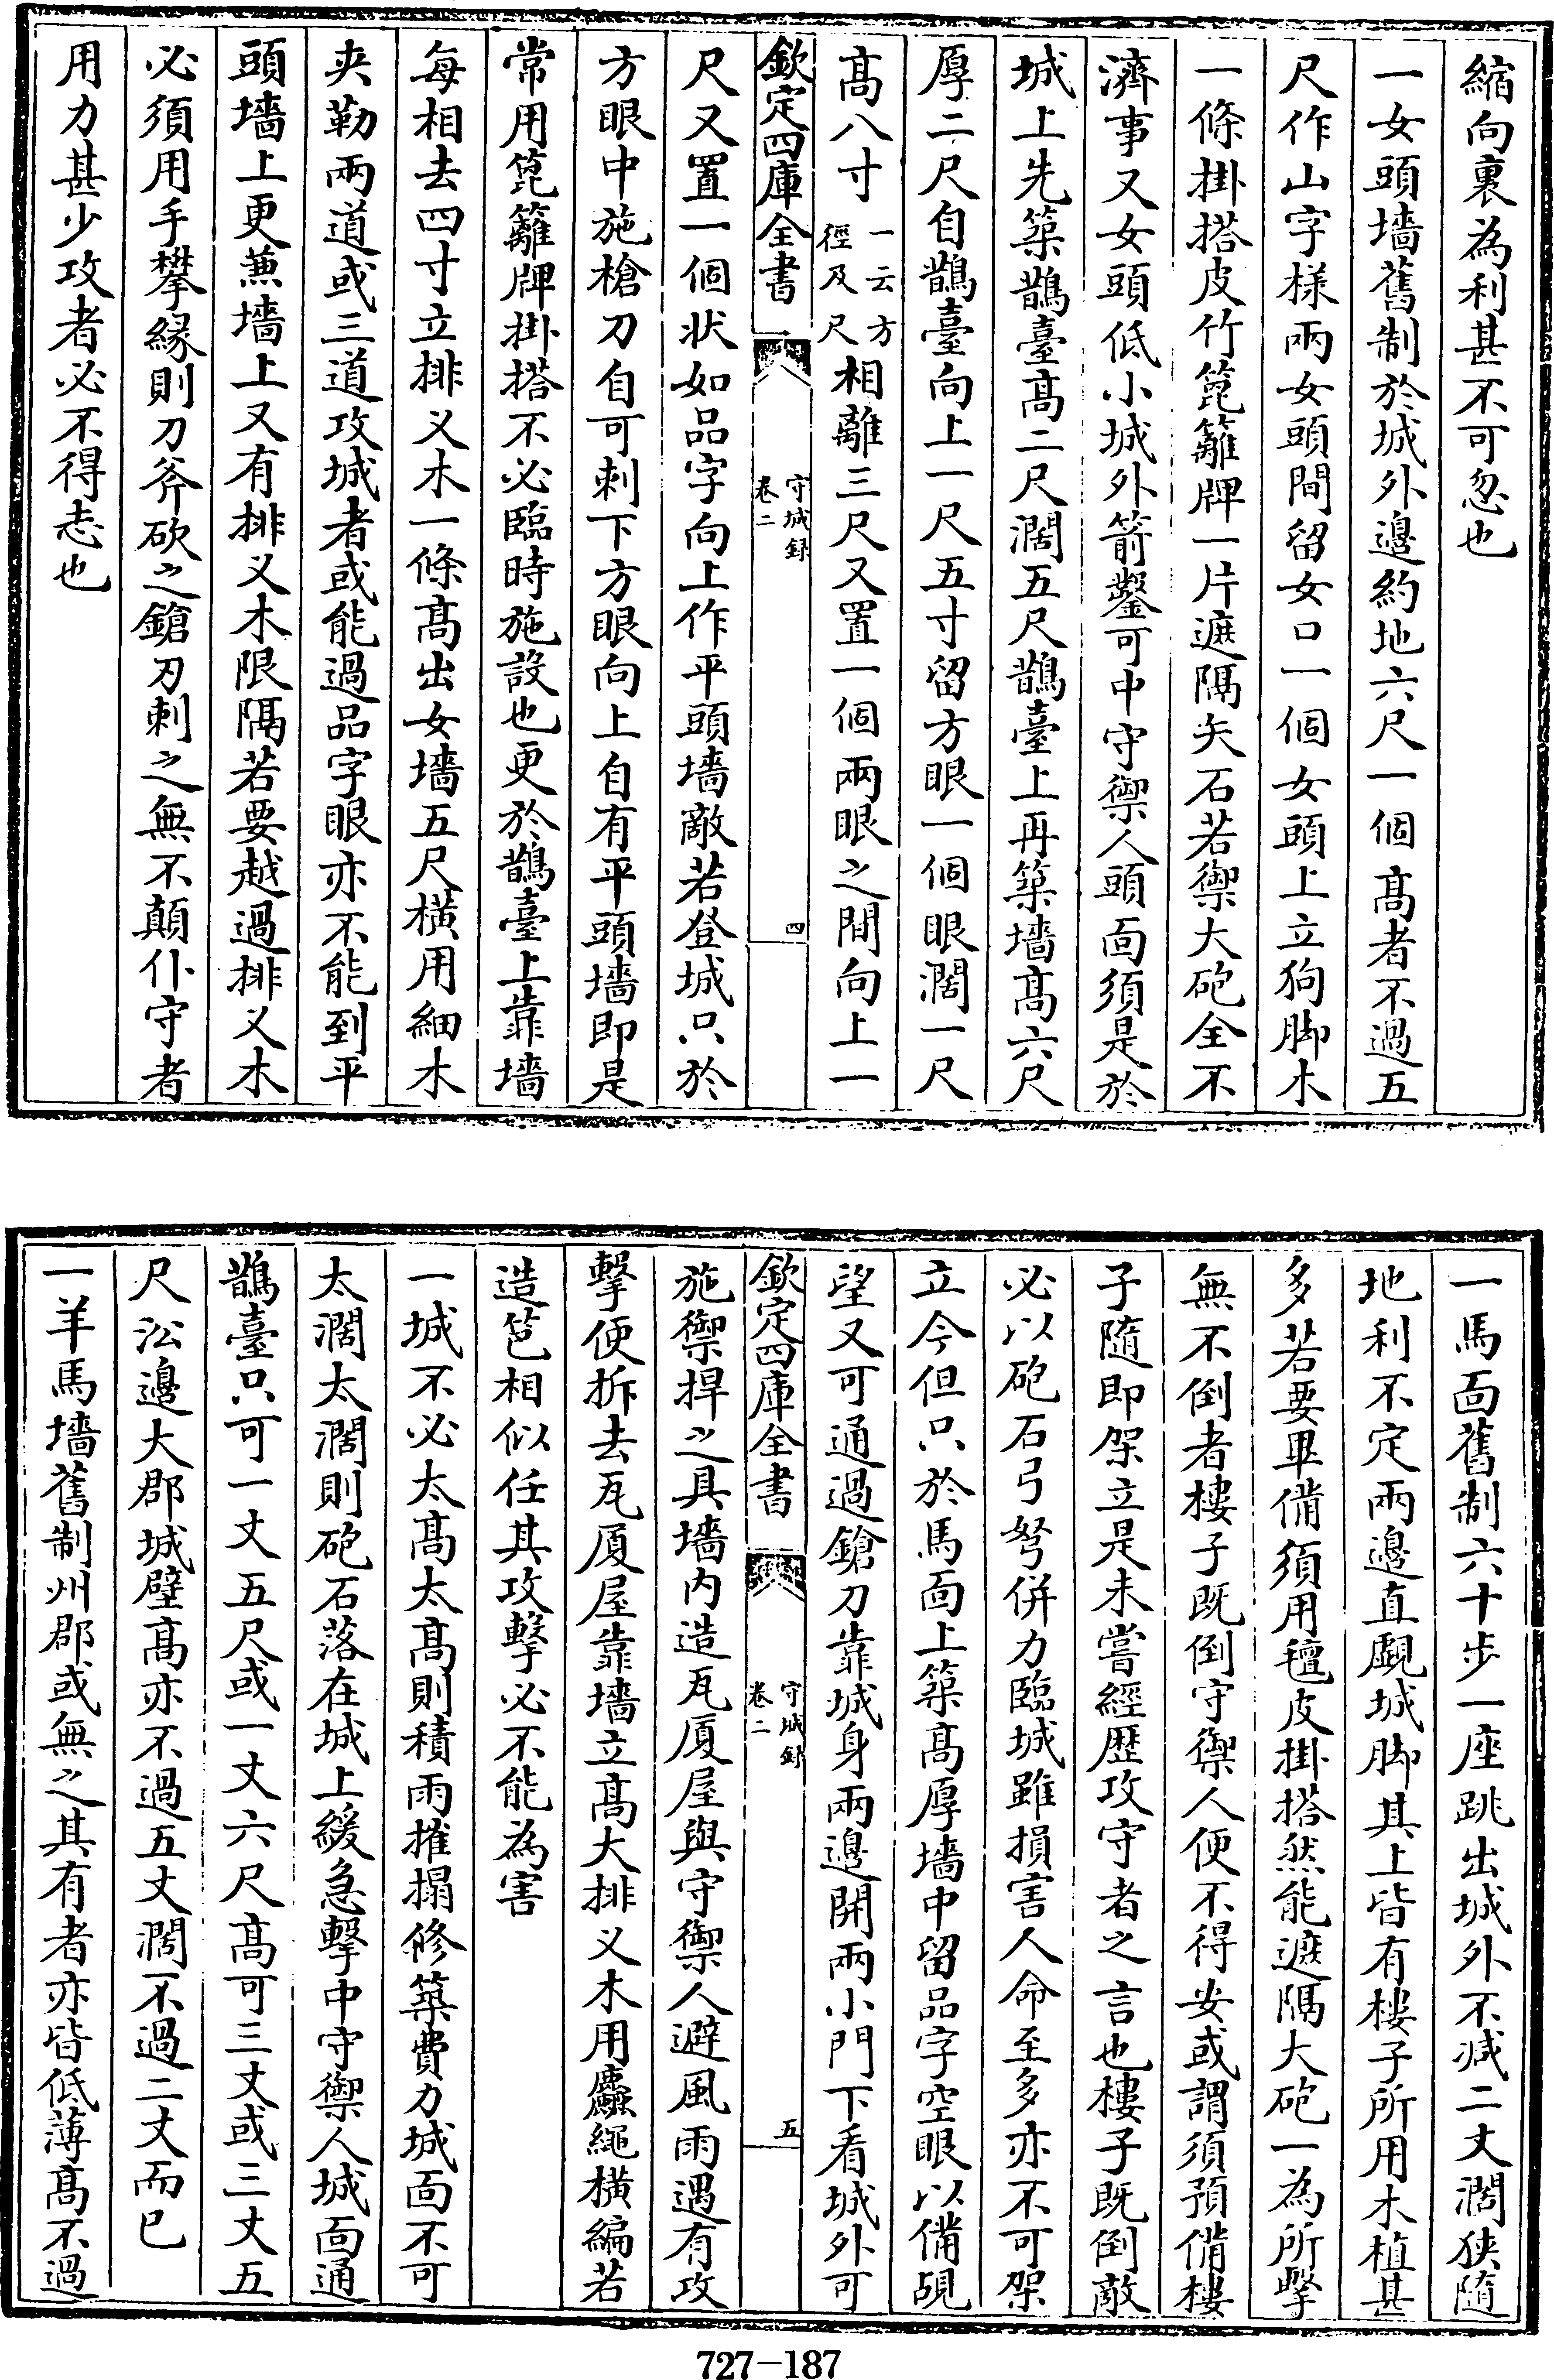 縮向裏為利甚不可忽也
一女頭墻舊制於城外邊約地六尺一個髙者不過五
尺作山字様兩女頭間留女口一個女頭上立狗脚木
一條掛搭皮竹箆籬牌一片遮隔矢石若禦大砲全不
濟事又女頭低小城外箭鑿可中守禦人頭面須是於
城上先築鵲臺髙二尺濶五尺鵲臺上再築墻髙六尺
厚二尺自鵲臺向上一尺五寸留方眼一個眼濶一尺
髙八寸一云方徑及尺相離三尺又置一個兩眼之間向上一
欽定四庫全書
守城録
卷二
四
尺又置一個狀如品字向上作平頭墻敵若登城只於
方眼中施槍刀自可刺下方眼向上自有平頭墻即是
常用箆籬牌掛搭不必臨時施設也更於鵲臺上靠墻
每相去四寸立排义木一條髙出女墻五尺横用細木
夾勒兩道或三道攻城者或能過品字眼亦不能到平
頭墻上更兼墻上又有排义木限隔若要越過排义木
必須用手攀縁則刀斧砍之鎗刃刺之無不顛仆守者
用力甚少攻者必不得志也
一馬面舊制六十步一座跳出城外不减二丈濶狹隨
地利不定兩邊直覷城脚其上皆有樓子所用木植甚
多若要畢備須用氊皮掛搭然能遮隔大砲一為所擊
無不倒者樓子既倒守禦人便不得安或謂須預備樓
子隨即架立是未嘗經歴攻守者之言也樓子既倒敵
必以砲石弓弩併力臨城雖損害人命至多亦不可架
立今但只於馬面上築髙厚墻中留品字空眼以備覘
望又可通過鎗刀靠城身兩邊開兩小門下看城外可
欽定四庫全書
守城録
卷二
五
施禦捍之具墻内造瓦厦屋與守禦人避風雨遇有攻
擊便拆去瓦厦屋靠墻立髙大排义木用麤繩横編若
造笆相似任其攻擊必不能為害
一城不必太髙太髙則積雨摧搨修築費力城面不可
太濶太濶則砲石落在城上緩急擊中守禦人城面通
鵲臺只可一丈五尺或一丈六尺髙可三丈或三丈五
尺㳂邊大郡城壁髙亦不過五丈濶不過二丈而已
一羊馬墻舊制州郡或無之其有者亦皆低薄髙不過
727-187